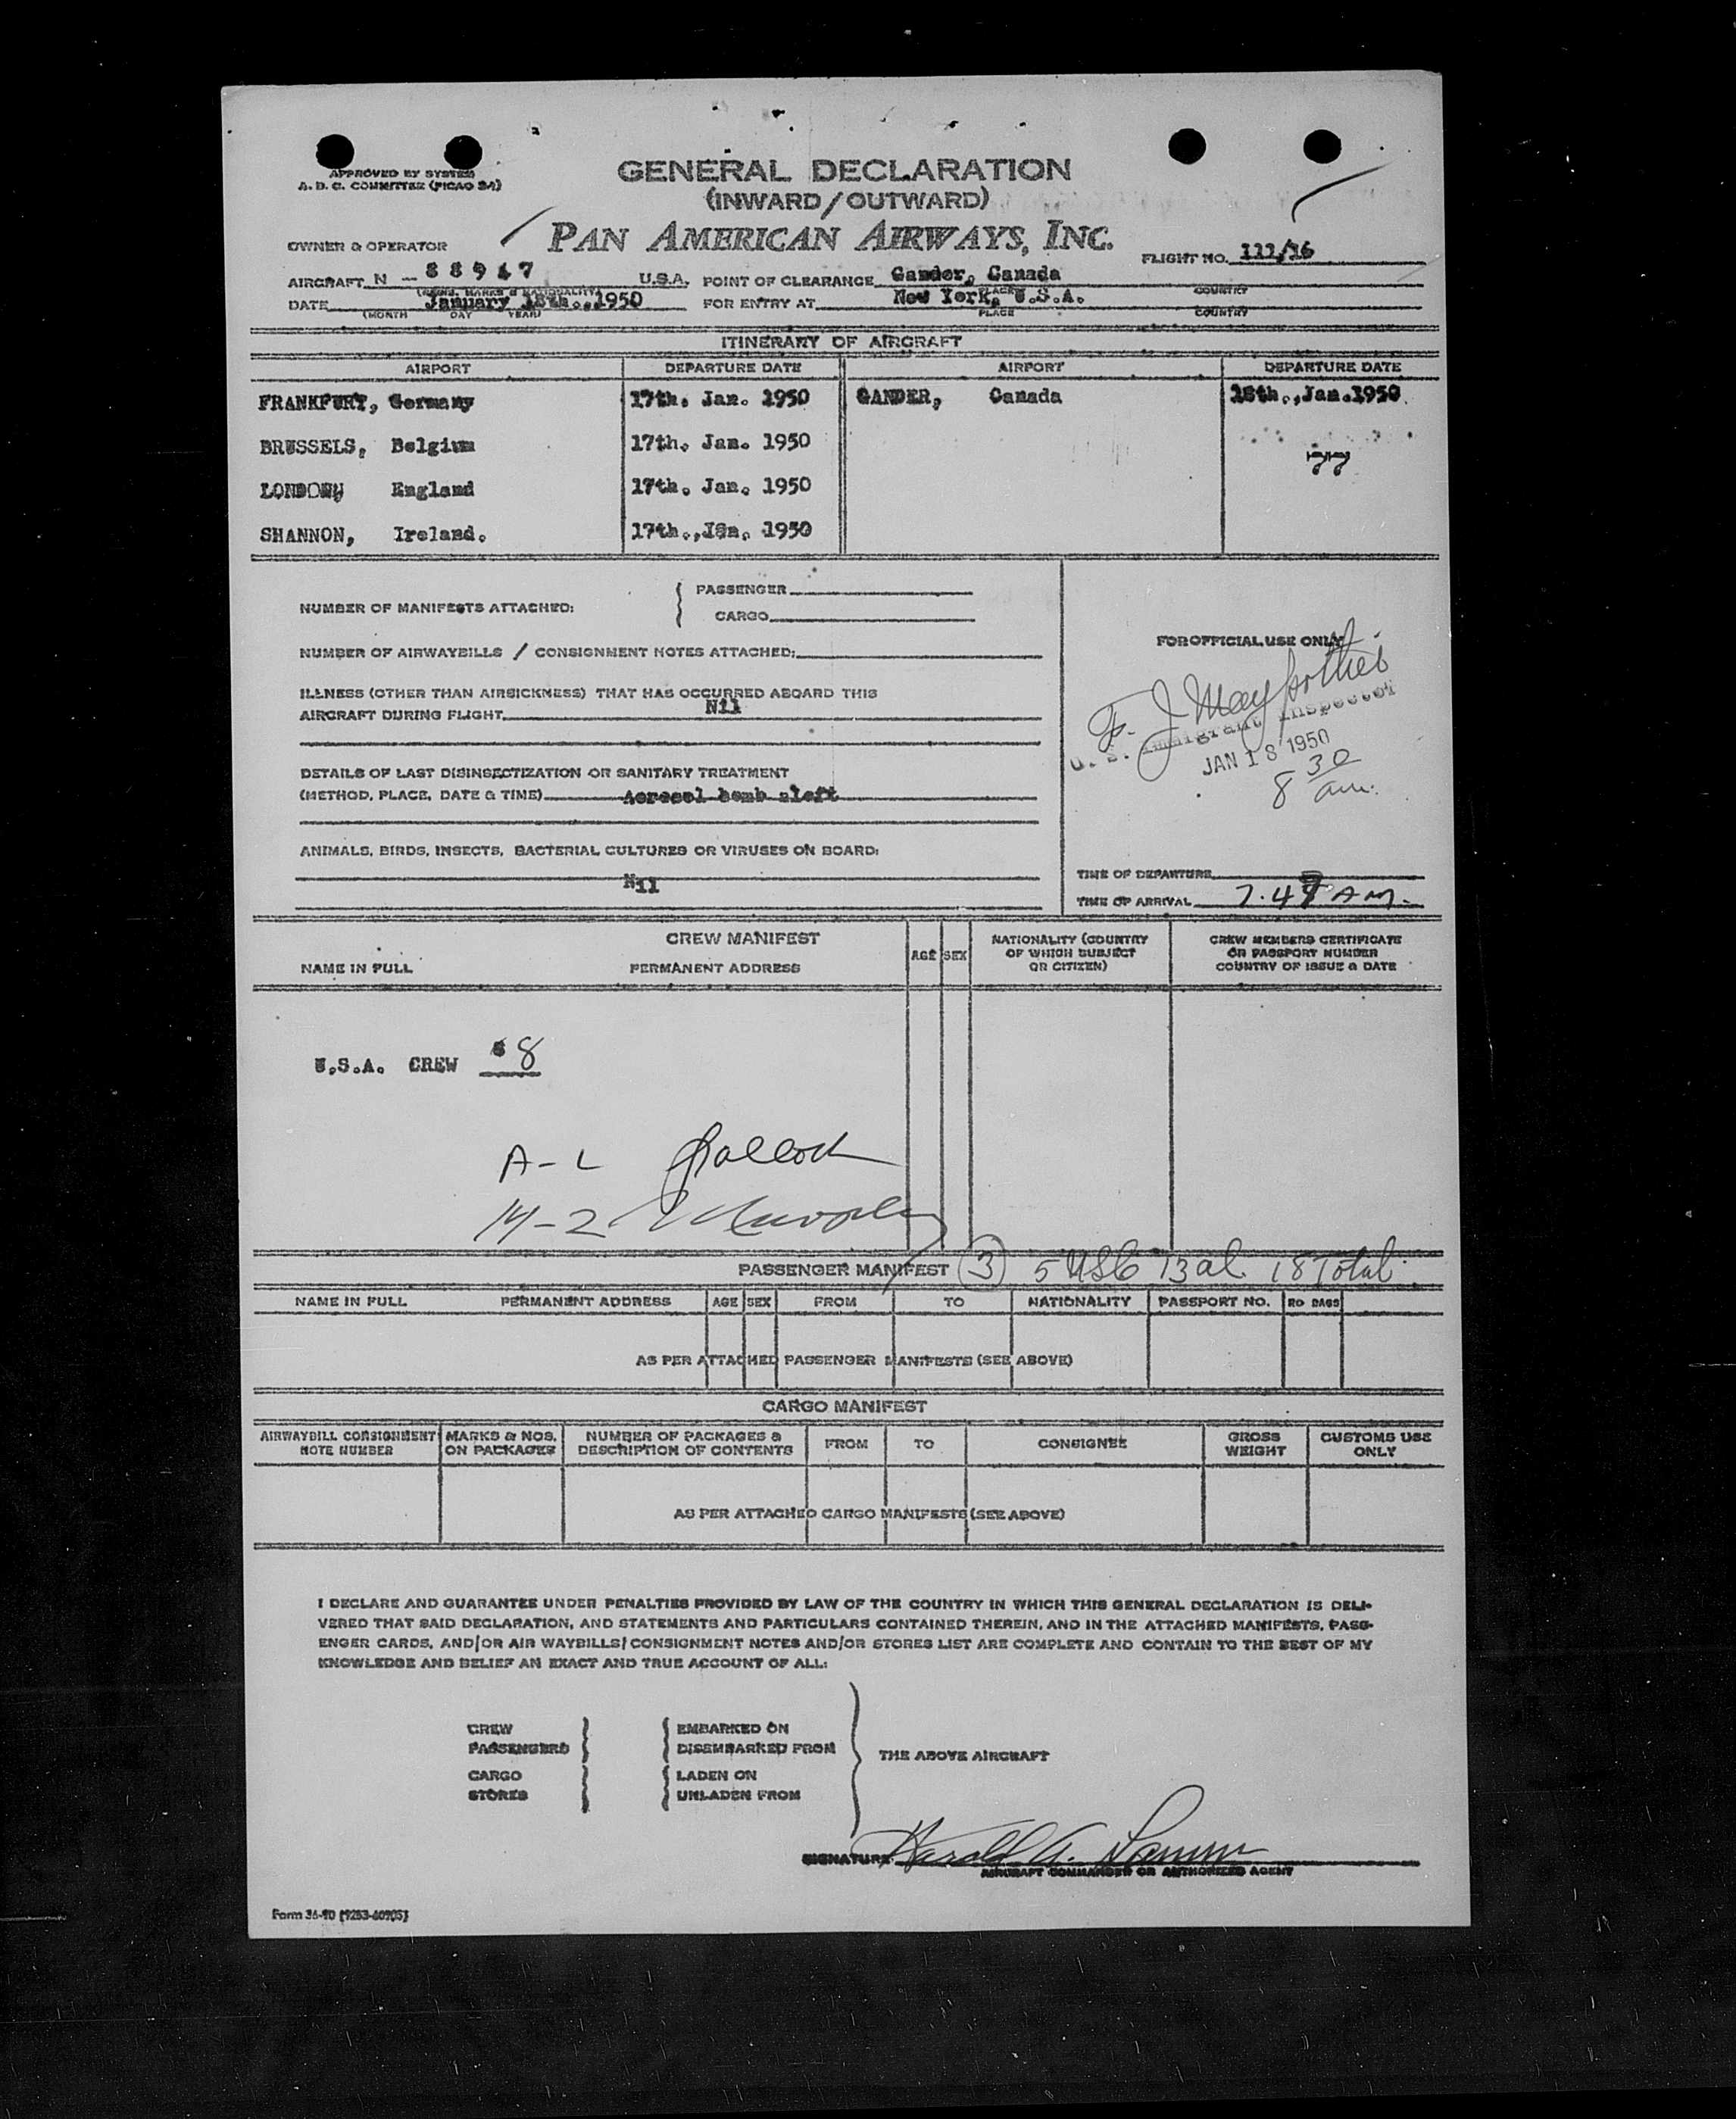 APPROVED BY SYSTEM
A. D. C. COMMITTEE (PICAO 2A)
GENERAL DECLARATION
(INWARD/OUTWARD)
OWNER & OPERATOR
PAN AMERICAN AIRWAYS, INC.
FLIGHT NO. 111/16
AIRCRAFT N - 88947 U.S.A. POINT OF CLEARANCE Gander, Canada
(REGIS. MARKS & NATIONALITY) PLACE COUNTRY
DATE January 18th., 1950 FOR ENTRY AT New York, U.S.A.
(MONTH DAY YEAR) PLACE COUNTRY
ITINERARY OF AIRCRAFT
AIRPORT DEPARTURE DATE AIRPORT DEPARTURE DATE
FRANKFURT, Germany 17th. Jan. 1950 GANDER, Canada 18th.,Jan.1950
BRUSSELS, Belgium 17th. Jan. 1950
77
LONDON, England 17th. Jan. 1950
SHANNON, Ireland. 17th.,Jan. 1950
NUMBER OF MANIFESTS ATTACHED: PASSENGER
CARGO
NUMBER OF AIRWAYBILLS / CONSIGNMENT NOTES ATTACHED:
FOR OFFICIAL USE ONLY
ILLNESS (OTHER THAN AIRSICKNESS) THAT HAS OCCURRED ABOARD THIS
AIRCRAFT DURING FLIGHT Nil
F. J. May
U. S. Immigrant Inspector
JAN 18 1950
8 30 am.
DETAILS OF LAST DISINSECTIZATION OR SANITARY TREATMENT
(METHOD, PLACE, DATE & TIME) Aerosol bomb aloft
ANIMALS, BIRDS, INSECTS, BACTERIAL CULTURES OR VIRUSES ON BOARD:
Nil
TIME OF DEPARTURE
TIME OF ARRIVAL 7.47 AM.
CREW MANIFEST
NAME IN FULL PERMANENT ADDRESS AGE SEX NATIONALITY (COUNTRY OF WHICH SUBJECT OR CITIZEN) CREW MEMBERS CERTIFICATE OR PASSPORT NUMBER COUNTRY OF ISSUE & DATE
U.S.A. CREW 8
A-L
14-2
PASSENGER MANIFEST (3) 5 USC 13 al. 18 Total.
NAME IN FULL PERMANENT ADDRESS AGE SEX FROM TO NATIONALITY PASSPORT NO. BAGS
AS PER ATTACHED PASSENGER MANIFESTS (SEE ABOVE)
CARGO MANIFEST
AIRWAYBILL CONSIGNMENT NOTE NUMBER MARKS & NOS. ON PACKAGES NUMBER OF PACKAGES & DESCRIPTION OF CONTENTS FROM TO CONSIGNEE GROSS WEIGHT CUSTOMS USE ONLY
AS PER ATTACHED CARGO MANIFESTS (SEE ABOVE)
I DECLARE AND GUARANTEE UNDER PENALTIES PROVIDED BY LAW OF THE COUNTRY IN WHICH THIS GENERAL DECLARATION IS DELI-
VERED THAT SAID DECLARATION, AND STATEMENTS AND PARTICULARS CONTAINED THEREIN, AND IN THE ATTACHED MANIFESTS, PASS-
ENGER CARDS, AND/OR AIR WAYBILLS/CONSIGNMENT NOTES AND/OR STORES LIST ARE COMPLETE AND CONTAIN TO THE BEST OF MY
KNOWLEDGE AND BELIEF AN EXACT AND TRUE ACCOUNT OF ALL:
CREW EMBARKED ON
PASSENGERS DISEMBARKED FROM
THE ABOVE AIRCRAFT
CARGO LADEN ON
STORES UNLADEN FROM
SIGNATURE Harold A.
AIRCRAFT COMMANDER OR AUTHORIZED AGENT
Form 36-9D (9283-60905)